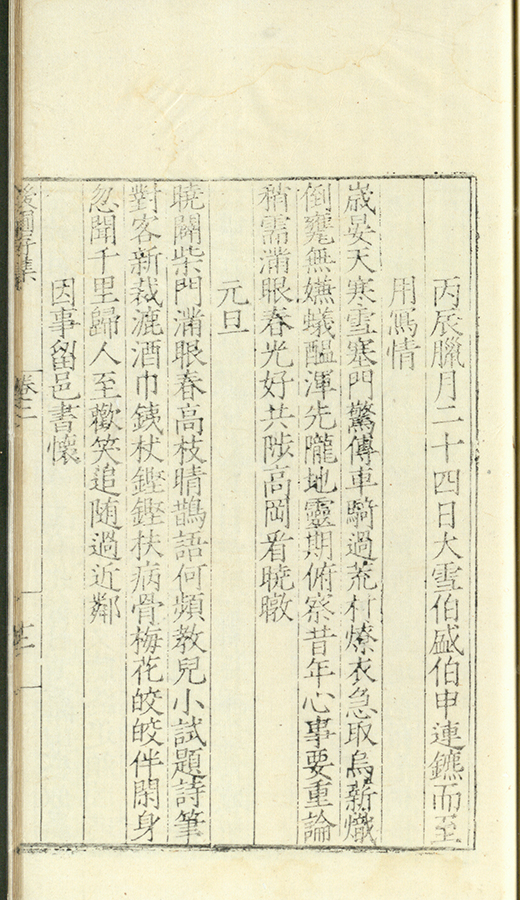 丙辰臘月二十四日大雪伯盛伯申連鑣而至
用寫情
歲晏天寒雪塞門驚傳車騎過荒村燎衣急取烏薪熾
倒甕無嫌蟻醞渾先隴地靈期俯察昔年心事要重論
稍需滿眼春光好共陟高岡看曉暾
元旦
曉闢柴門滿眼春高枝晴鵲語何頻教兒小試題詩筆
對客新裁漉酒巾銕杖鏗鏗扶病骨梅花皎皎伴閑身
忽聞千里歸人至歡笑追随過近鄰
因事留邑書懷
卷二